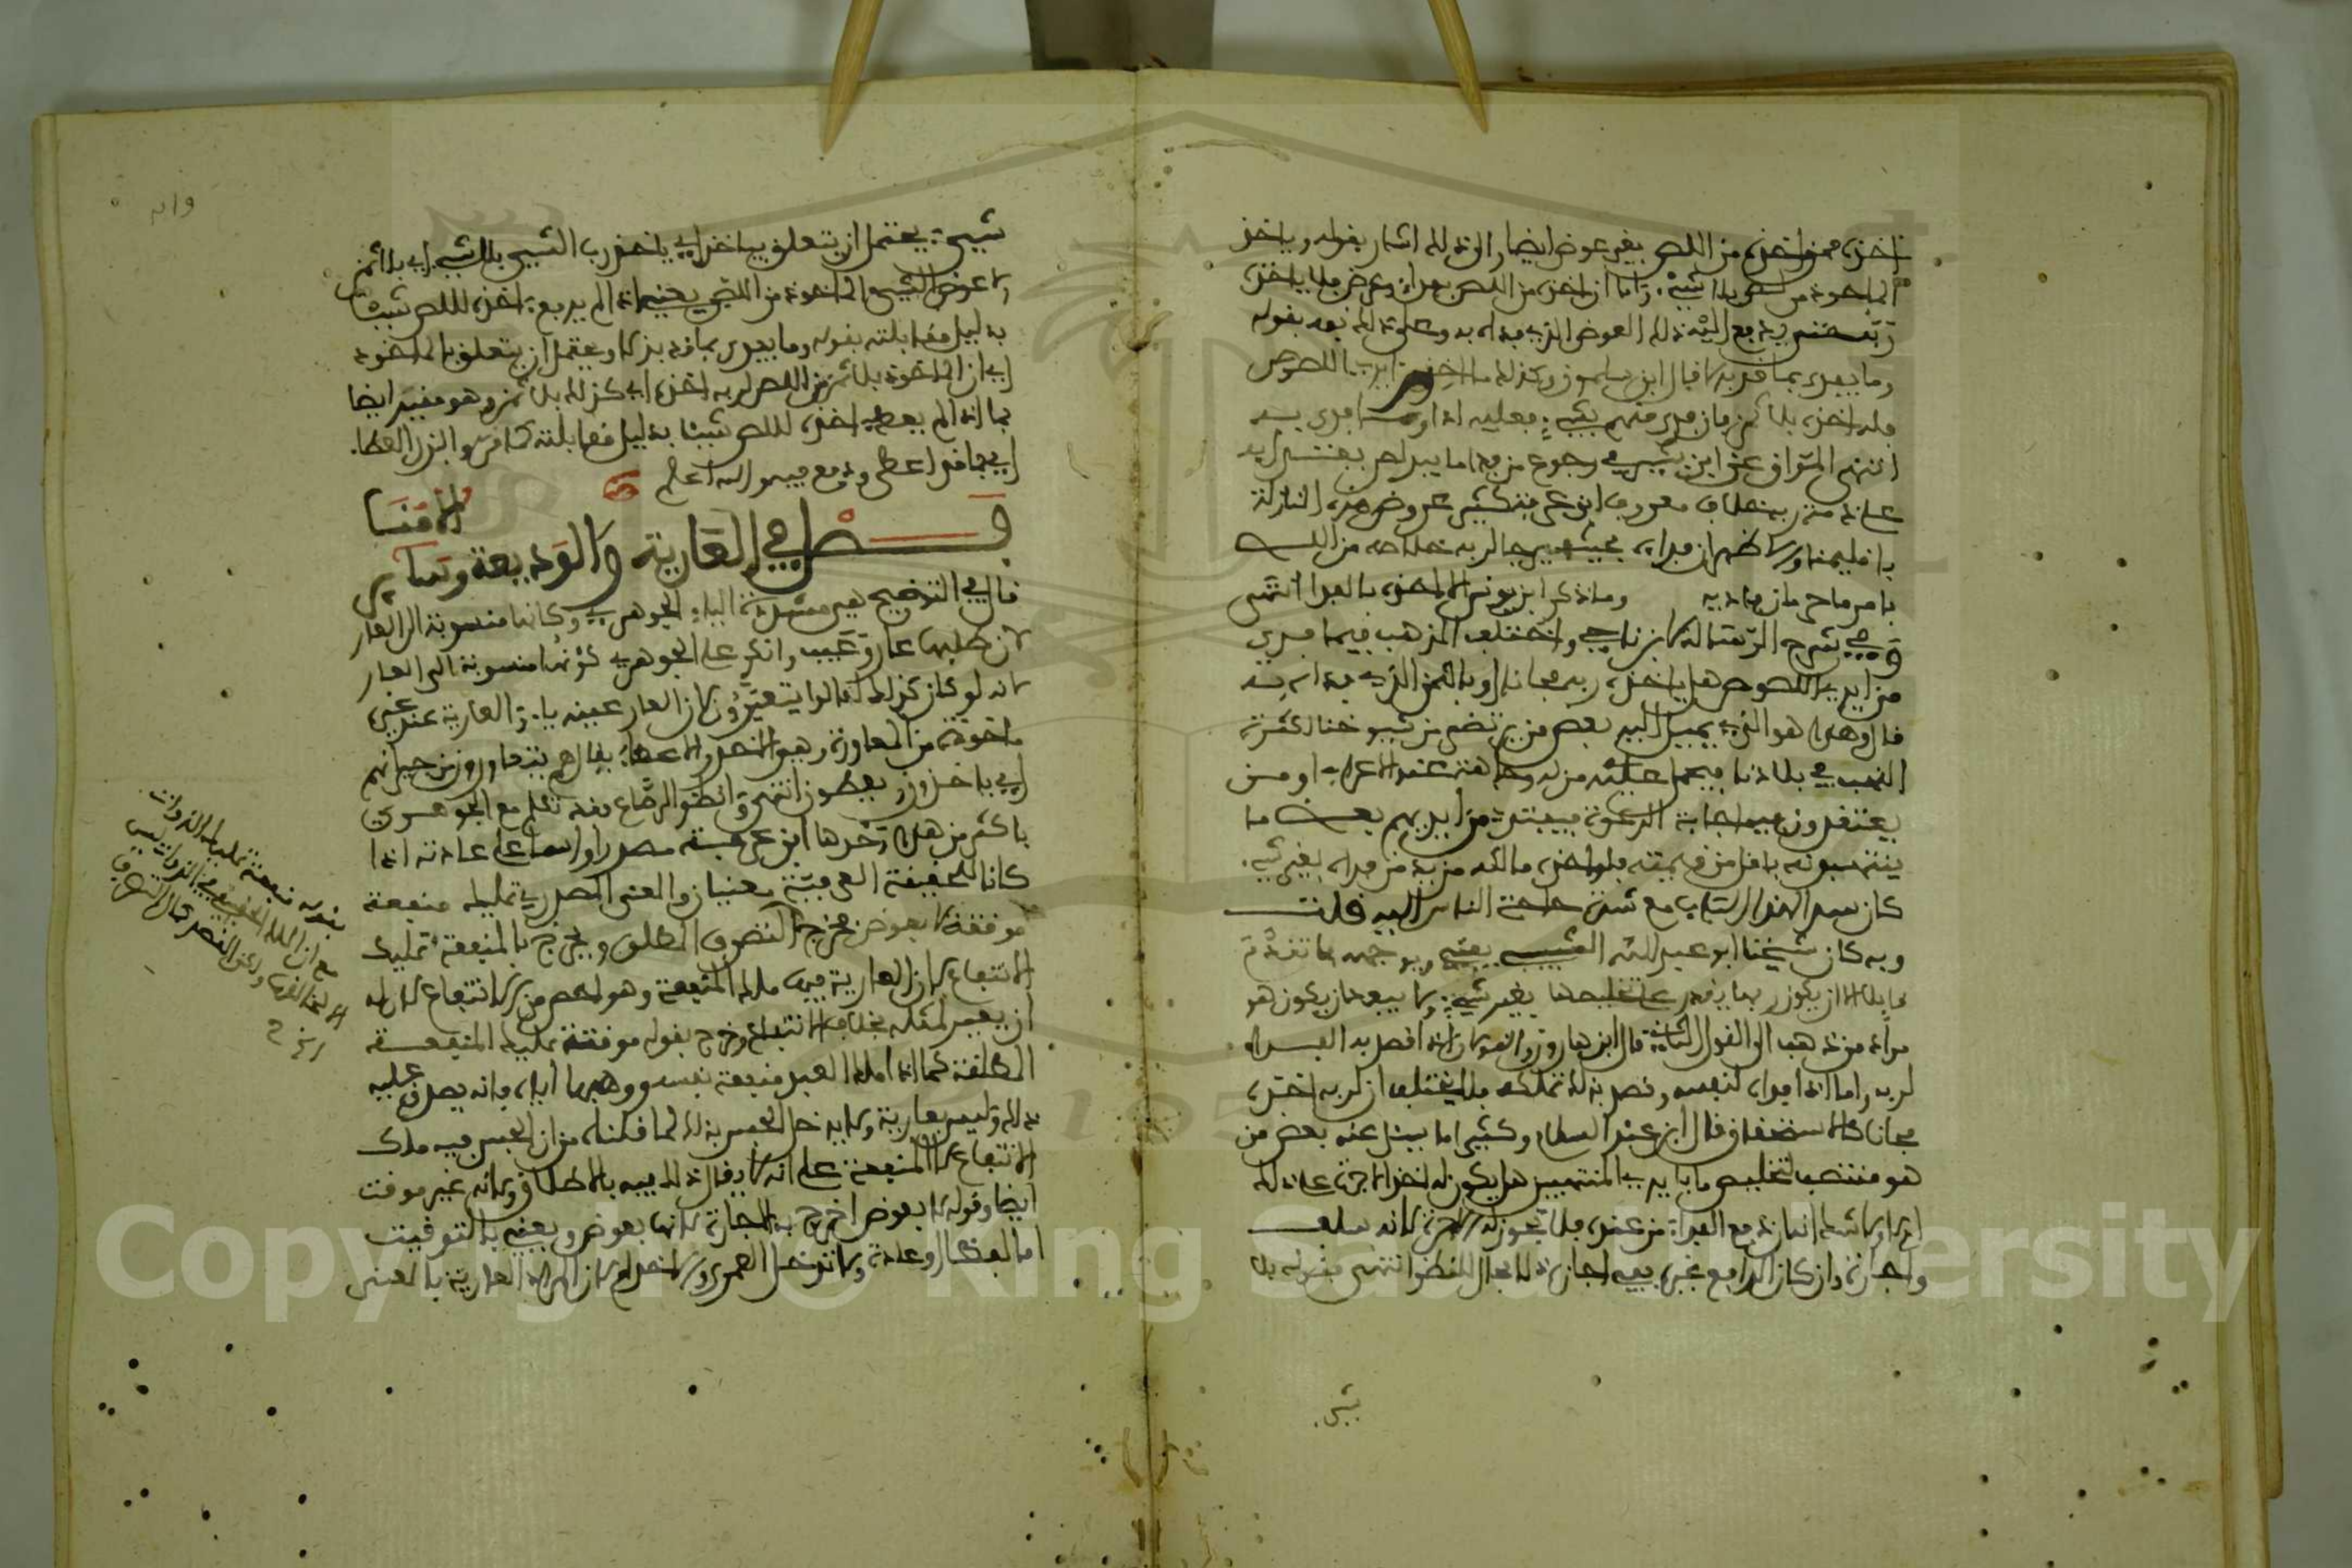 اخذه ممن اخذه من اللص بغير عوض ايضا والى ذلك اشار بقوله وياخذ
الماخوذ من لص بلا شيء واما ان اخذه من اللص بفداء وعوض فلا ياخذه
ربه حتى يدفع اليه ذلك العوض الذي فداه به وعلى ذلك نبه بقوله
وما يفدى بما قد بذلا قال ابن سلمون وكذلك ما اخذ من ايدي اللصوص
فله اخذه بلا ثمن فان فدى منهم بشيء فعليه اداؤه
انتهى المواق عن ابن بشير في رجوع من فدا ما بيد لص بفتنة
على ربه خلاف معروف ابن عرفة كثير عروض هذه النازلة
باقليمنا والاظهر ان فداه بحيث يرجا لربه خلاصه من اللص
بامر ما رجع فاديه وما ذكر ابن يونس الا اخذه بالفدا انتهى
وفي شرح الرسالة لابن ناجي واختلف المذهب فيما فدي
من ايدي اللصوص هل ياخذه ربه مجانا او بالثمن الذي فداه به
قال وهذا هو الذي يميل اليه بعض من يرتضى من شيوخنا لكثرة
النهب في بلادنا فيحملا عليه من له وجاهة عند الاعراب او من
يعتقدون فيه اجابة الدعوة فيفتدي من ايديهم بعض ما
ينتهبونه باقل من قيمته فلو اخذه مالكه من يد من فداه بغير شيء
كان سد الهذا الباب مع شدة حاجة الناس اليه قلت
وبه كان شيخنا ابو عبد الله الشبيبي يفتي ويوجهه بما تقدم
قائلا الا ان يكون ربها يقدر على تخليصها بغير شيء ولا يبعد ان يكون هو
مراد من ذهب الى القول الثاني قال ابن هارون والقولان اذا قصد به الفداء
لربه واما اذا فداه لنفسه وقصد بذلك تملكه فلا يختلف ان لربه اخذه
مجانا كالاستحقاق قال ابن عبد السلام وكثيرا ما يسئل عنه بعض من
هو منتصب لتخليص ما بايدي المنتهبين هل يكون له اخذ الاجرة على ذلك
ام لا ولا شك انه ان دفع الفداء من عنده فلا تجوز له الاجرة لانه سلف
واجارة وان كان الدافع غيره ففي اجازة ذلك مجال للنظر انتهى فقوله بلا
شيء
شيء يحتمل ان يتعلق بياخذ اي ياخذ رب الشيء بلا شيء اي بلا ثمن
ولا عوض الشيء الماخوذ من اللص يعني اذا لم يدفع اخذه للص شيئا
بدليل مقابلته بقوله وما يفدى بما قد بذلا ويحتمل ان يتعلق بالماخوذ
اي ان الماخوذ بلا ثمن من اللص لربه اخذه اي كذلك بلا ثمن وهو مقيد ايضا
بما اذا لم يعط اخذه للص شيئا بدليل مقابلته كما مر والبذل العطاء
اي بما قد اعطى ودفع فيه والله اعلم
فصل في العارية والوديعة والامناء
قال في التوضيح هي مشددة الياء الجوهري وكانها منسوبة الى العار
لان طلبها عار وعيب وانكر على الجوهري كونها منسوبة الى العار
لانه لو كان كذلك لقالوا يتعيرون لان العار عينه ياء والعارية عند غيره
ماخوذة من المعاورة وهو الاخذ والاعطاء يقال هم يتعاورون من جيرانهم
اي ياخذون ويعطون انتهى وانظر الرصاع فقد تكلم مع الجوهري
باكثر من هذا وحدها ابن عرفة مصدرا واسما على عادته اذا
كانا للحقيقة العرفية معنيان والمعنى المصدري تمليك منفعة
موقتة لا بعوض فخرج التصرف المطلق ويخرج بالمنفعة تمليك
الانتفاع لان العارية فيها ملك المنفعة وهو اخص من الانتفاع لان له
ان يعير لمثله بخلاف الانتفاع وخرج بقوله موقتة تمليك المنفعة
المطلقة كما اذا ملك العبد منفعة نفسه ووهبها اياه فانه يصدق عليه
ذلك وليس بعارية ولا يدخل الحبس بذلك لما قلناه من ان الحبس فيه ملك
الانتفاع لا المنفعة على انه لا يقال ذلك فيه بالاطلاق ولانه غير موقت
ايضا وقوله لا بعوض اخرج به الاجارة لانها بعوض ويعني بالتوقيت
اما لفظا او عادة ولا تدخل العمرى والاخدام لان المراد العارية بالمعنى
بقوله منفعة تمليك الذوات